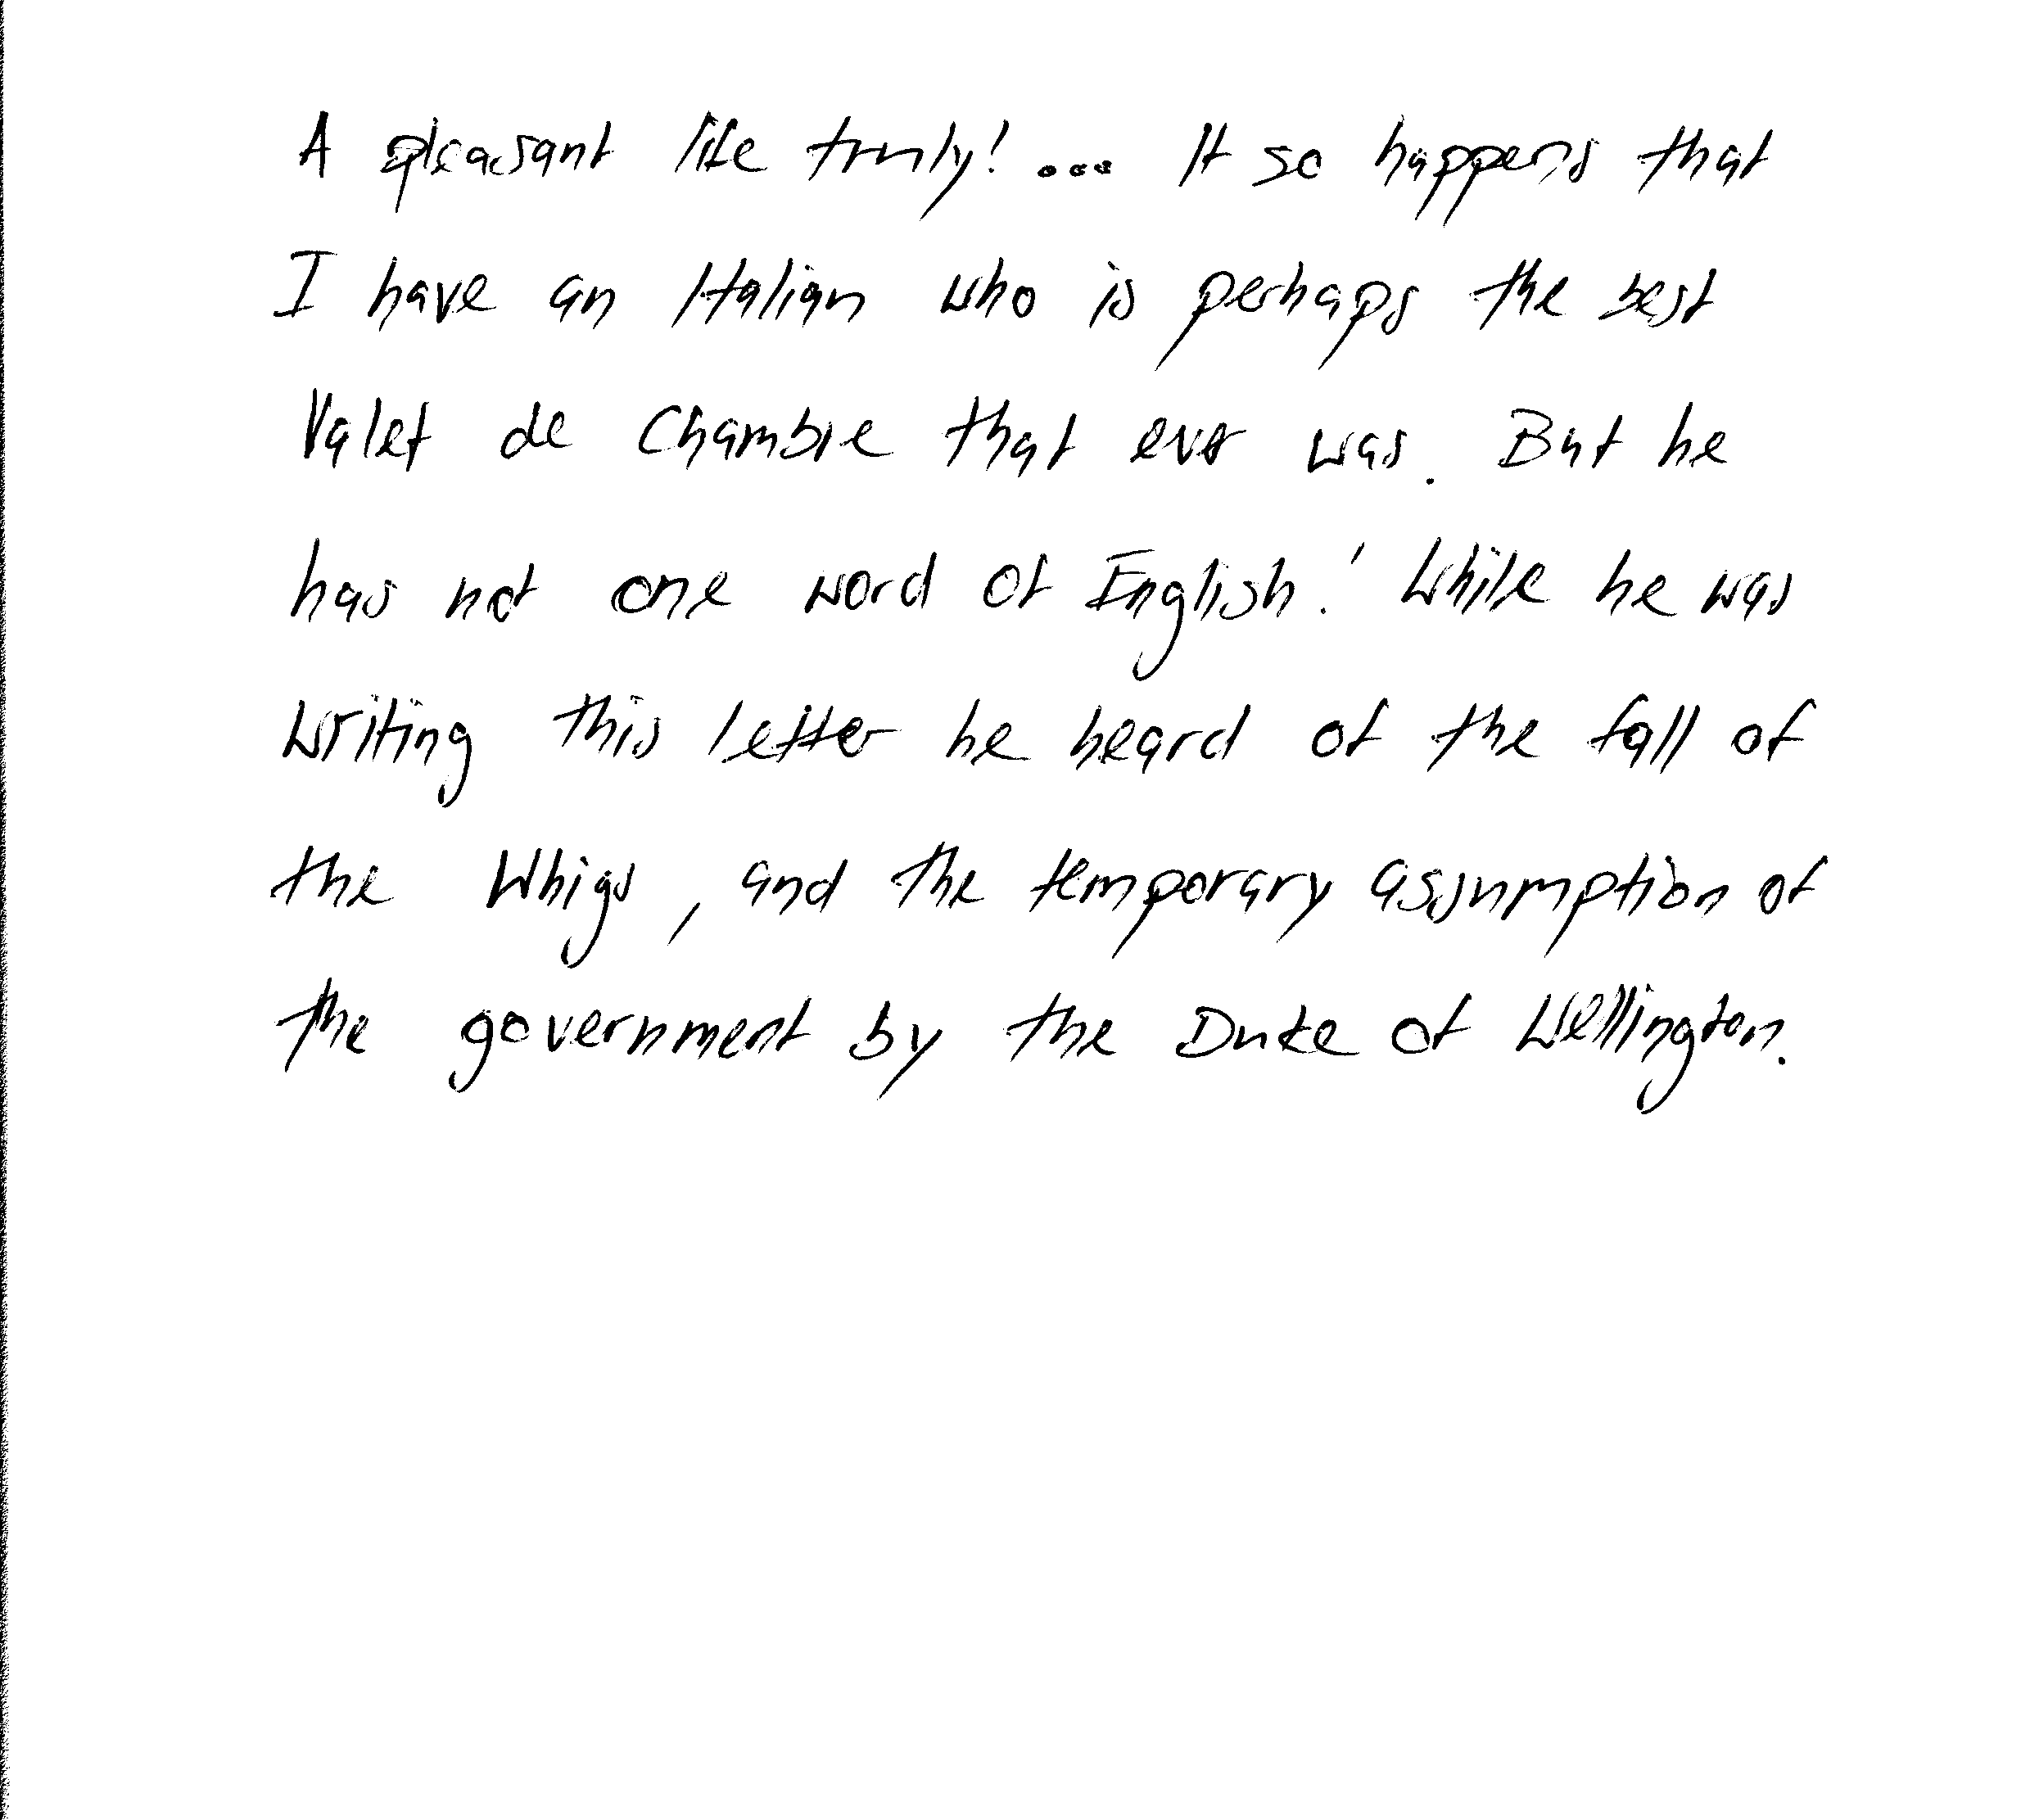 A pleasant life truly! ... It so happens that
I have an Italian who is perhaps the best
Valet de Chambre that ever was. But he
has not one word of English! While he was
writing this letter he heard of the fall of
the Whigs, and the temporary assumption of
the government by the Duke of Wellington.